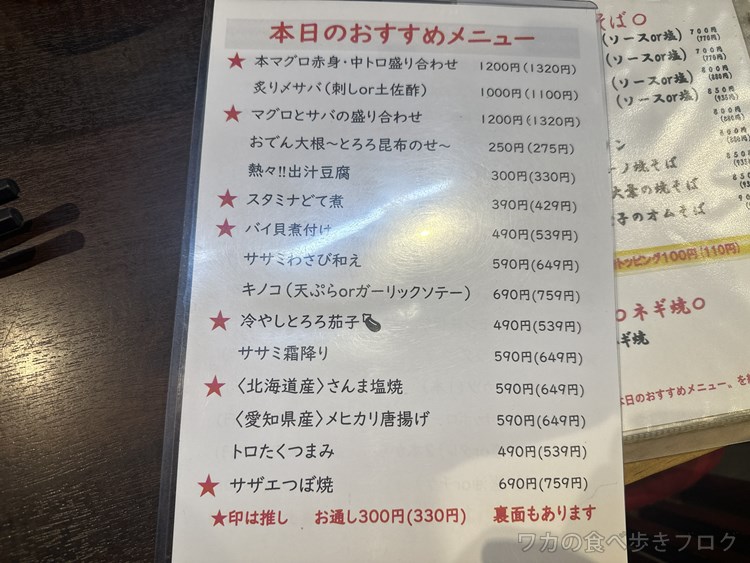 本日のおすすめメニュー
★ 本マグロ赤身・中トロ盛り合わせ 1200円(1320円)
炙りメサバ(刺しor土佐酢) 1000円(1100円)
★ マグロとサバの盛り合わせ 1200円(1320円)
おでん大根〜とろろ昆布のせ〜 250円(275円)
熱々!!出汁豆腐 300円(330円)
★ スタミナどて煮 390円(429円)
★ バイ貝煮付け 490円(539円)
ササミわさび和え 590円(649円)
キノコ(天ぷらorガーリックソテー) 690円(759円)
★ 冷やしとろろ茄子🍆 490円(539円)
ササミ霜降り 590円(649円)
★〈北海道産〉さんま塩焼 590円(649円)
〈愛知県産〉メヒカリ唐揚げ 590円(649円)
トロたくつまみ 490円(539円)
★ サザエつぼ焼 690円(759円)
★印は推し お通し300円(330円) 裏面もあります
そば〇
(ソースor塩) 700円(770円)
(ソースor塩) 700円(770円)
(ソースor塩) 800円(880円)
(ソースor塩) 850円(935円)
800円(880円)
ン
ーノ焼そば
大葉の焼そば
子のオムそば
トッピング100円(110円)
〇ネギ焼〇
ネギ焼
本日のおすすめメニュー。を
ワカの食べ歩きブログ